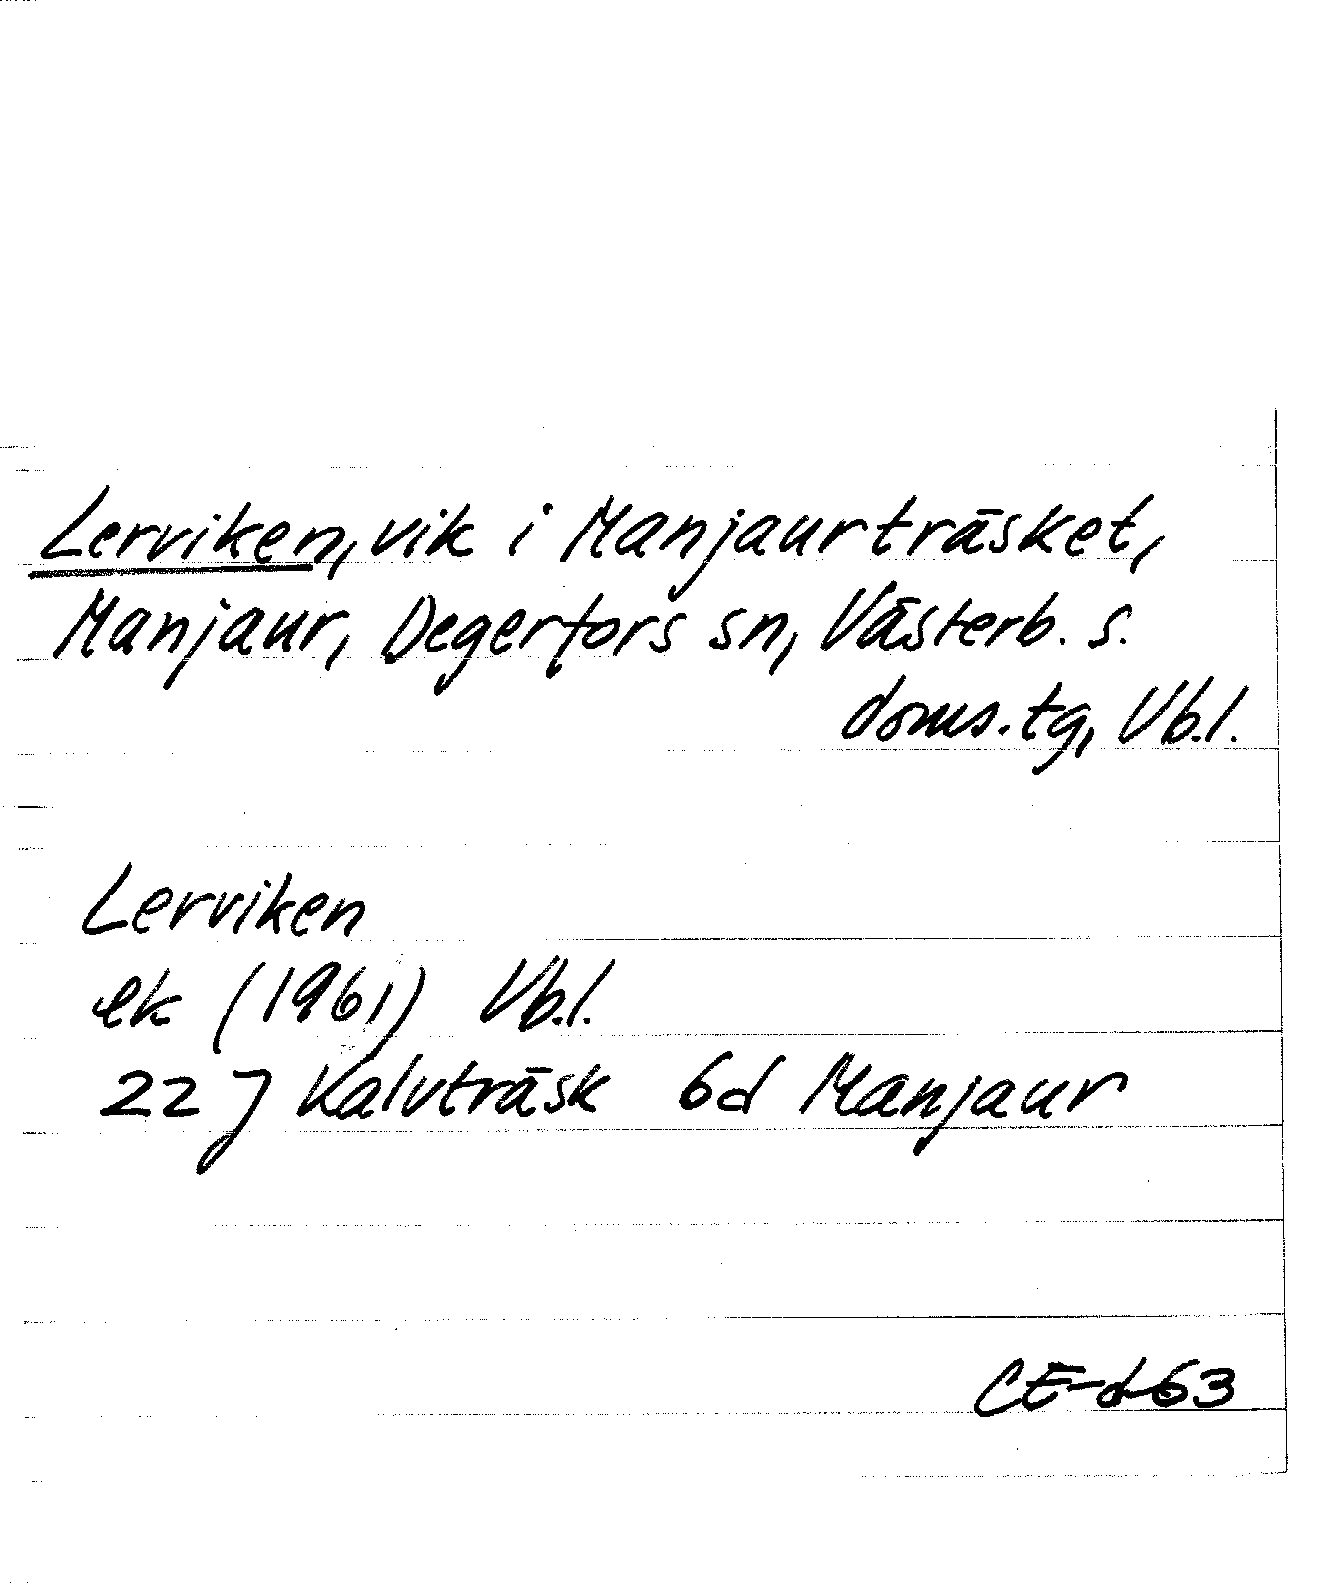 Lerviken, vik i Manjaurträsket,
Manjaur, Degerfors sn, Västerb. s.
doms.tg, Vb.l.
Lerviken
ek (1961) Vb.l.
22 J Kalvträsk 6d Manjaur